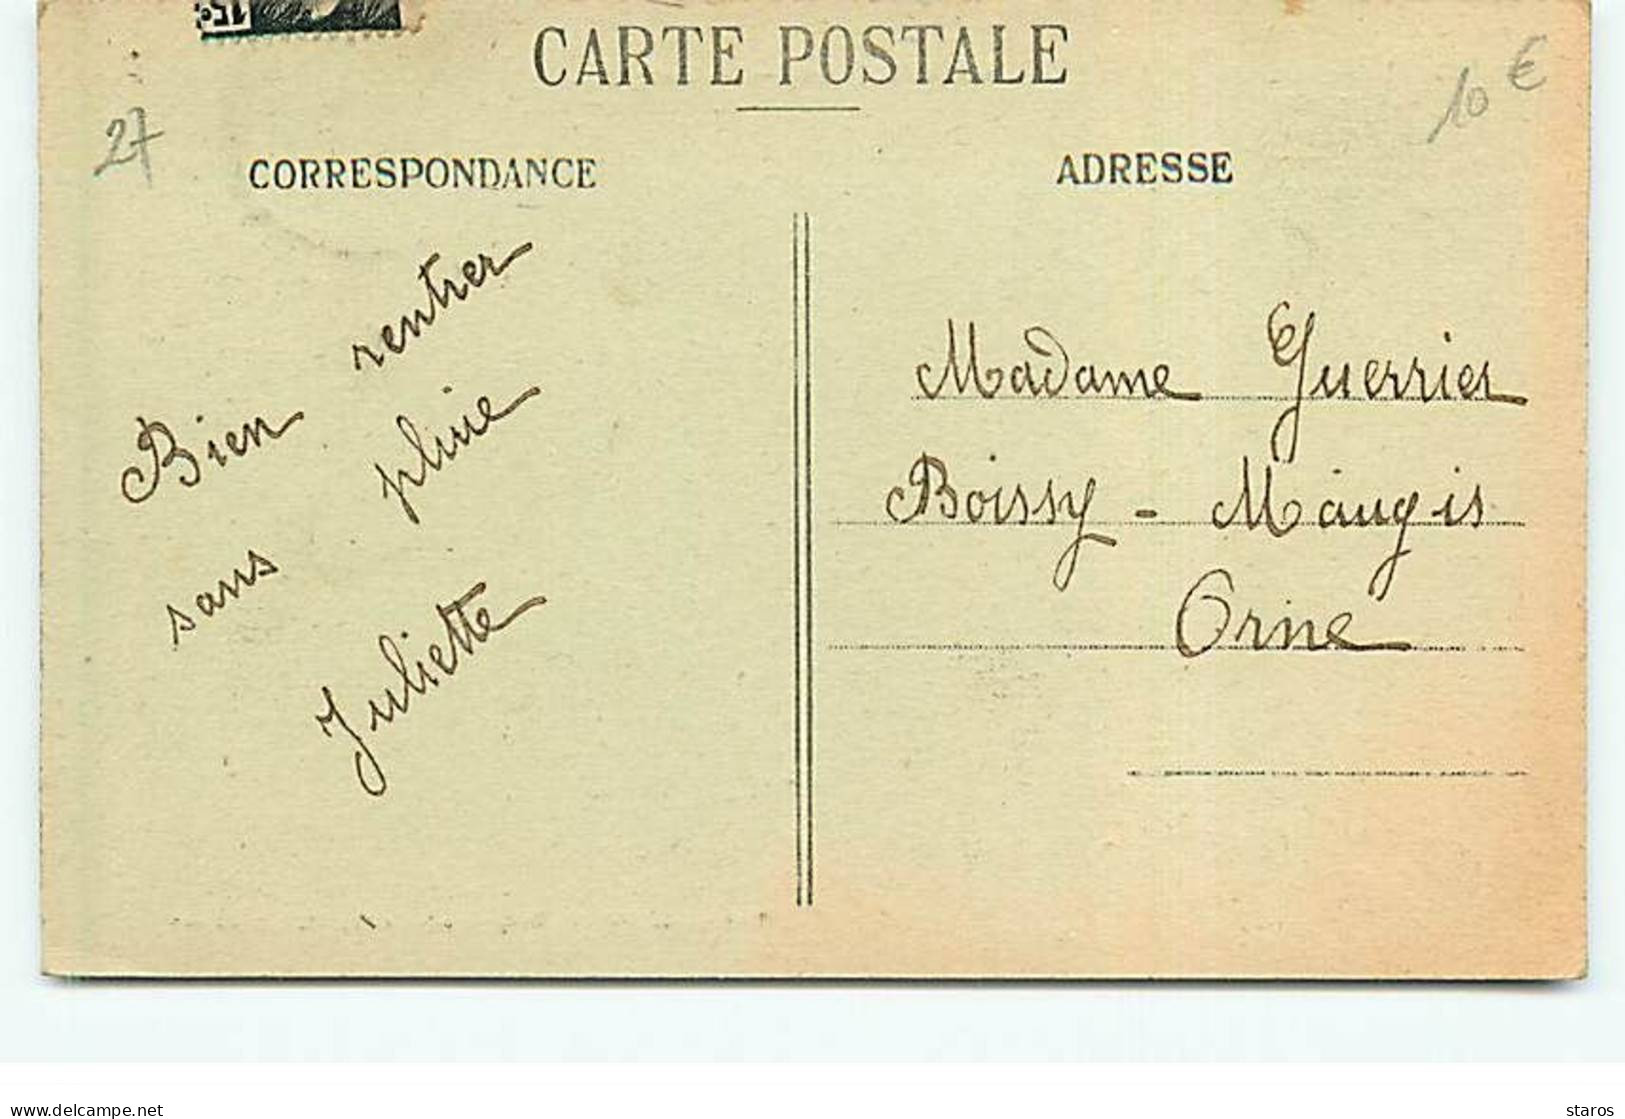 15c
CARTE POSTALE
27
10 €
CORRESPONDANCE
ADRESSE
Bien rentrer
sans pluie
Juliette
Madame Guerrier
Boissy - Maugis
Orne
delcampe.net
staros